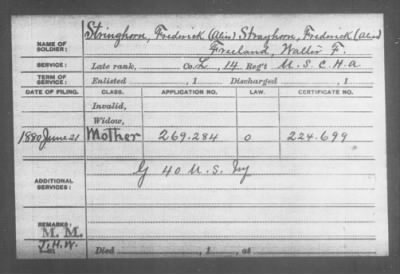 Stringhorn, Frederick (Alias) Strayhorn, Frederick (Alias)
NAME OF SOLDIER:
Freeland, Walter F.
SERVICE: Late rank, Co. L, 14 Reg't U.S.C.H.A.
TERM OF SERVICE: Enlisted , 1 Discharged , 1
DATE OF FILING. CLASS. APPLICATION NO. LAW. CERTIFICATE NO.
Invalid,
Widow,
1880 June 21 Mother 269.284 0 224.699
G 40 U.S. Inf
ADDITIONAL SERVICES:
REMARKS:
M. M.
J.H.W.
Died , 1 , at